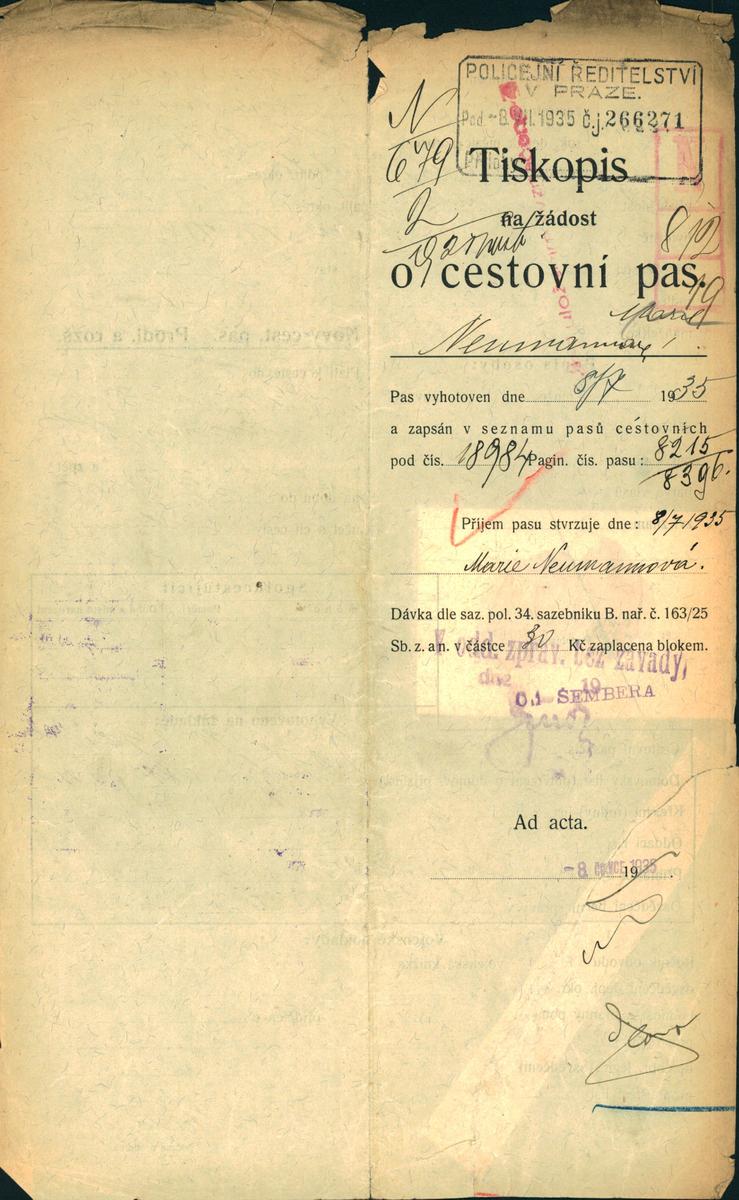 POLICEJNÍ ŘEDITELSTVÍ
V PRAZE.
Pod -8. VII. 1935 č.j. 266271
N
679
2
Tiskopis
na žádost
8/12
19
o cestovní pas.
Marie
Neumannová
Pas vyhotoven dne 8/7 1935
a zapsán v seznamu pasů cestovních
pod čís. 18984 Pagin. čís. pasu: 8215
8396.
Příjem pasu stvrzuje dne: 8/7 1935
Marie Neumannová.
Dávka dle saz. pol. 34. sazebníku B. nař. č. 163/25
Sb. z. a n. v částce 30 Kč zaplacena blokem.
V odd. zpráv. bez závady,
dne 19
ŠEMBERA
Ad acta.
-8. ČERVENCE 1935
19